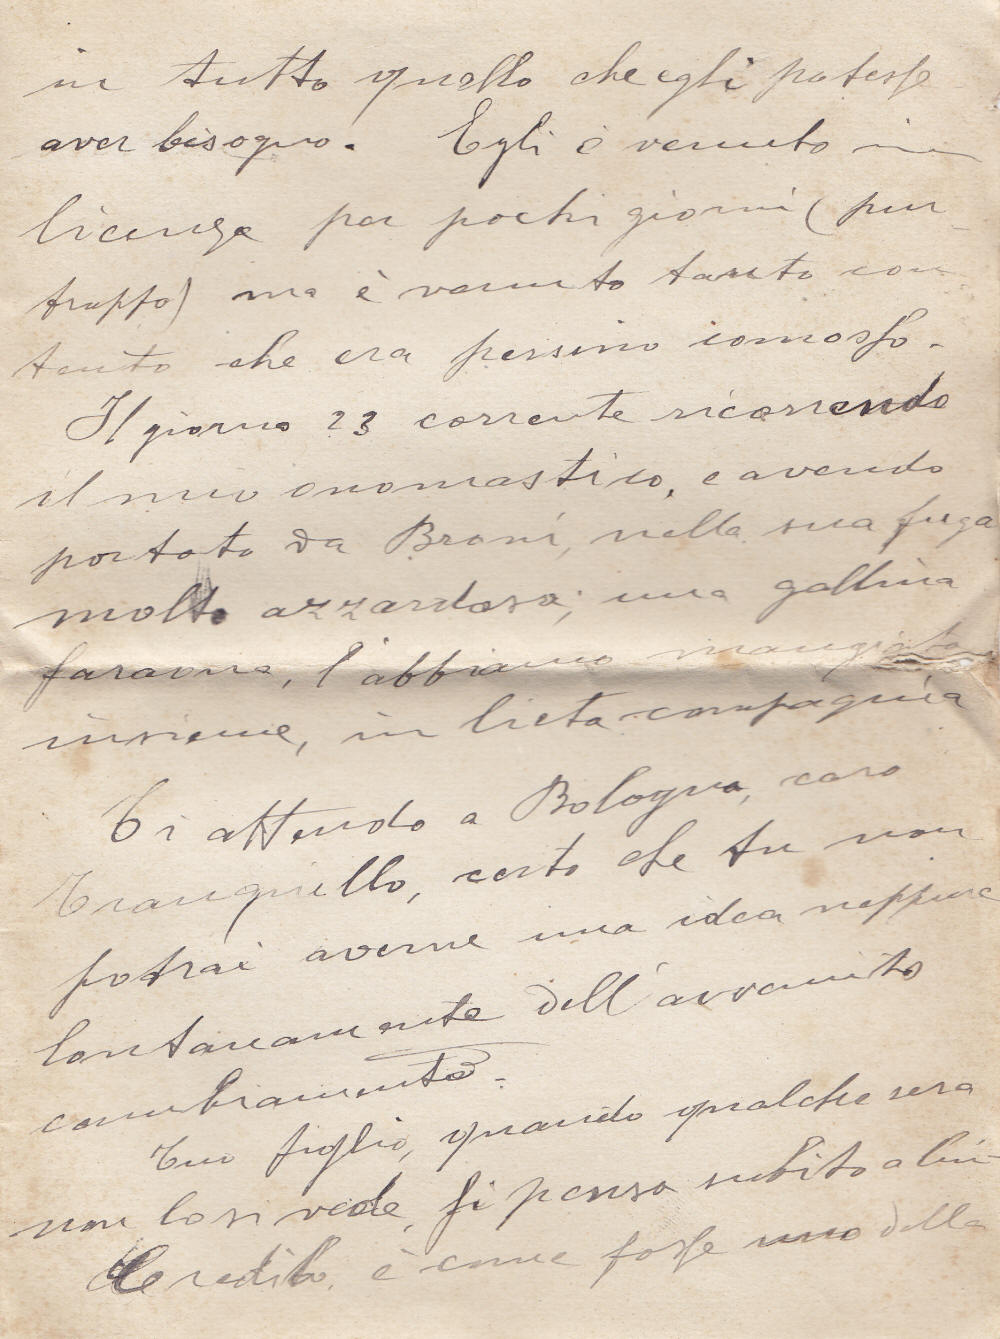 in tutto quello che egli potesse
aver bisogno. Egli è venuto in
licenza per pochi giorni (pur
troppo) ma è venuto tanto con
tento che era persino
Il giorno 23 corrente ricorrendo
il mio onomastico, e avendo
portato da Broni, nella sua fuga
molto azzardosa; una gallina
faraona, l'abbiamo mangiata
insieme, in lieta compagnia
Ti attendo a Bologna, caro
Tranquillo, certo che tu non
potrai averne una idea neppure
lontanamente dell'avvenuto
cambiamento.
Tuo figlio, quando qualche sera
non lo si vede, si pensa subito a lui
Credilo, è come fosse uno della